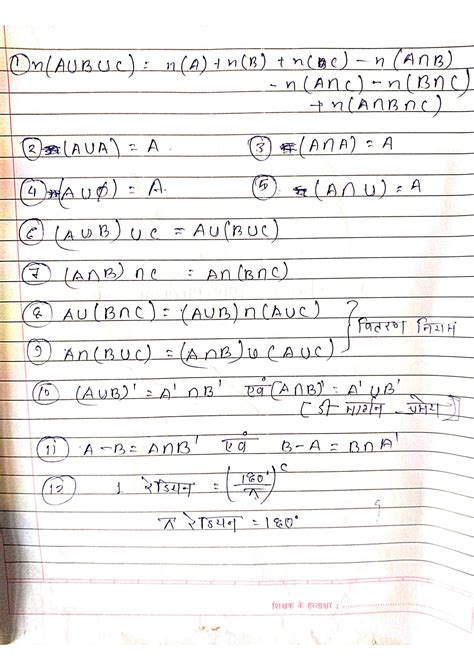 ① n(AUBUC) = n(A) + n(B) + n(C) - n(A∩B)
- n(A∩C) - n(B∩C)
+ n(A∩B∩C)
② (AUA) = A. ③ (A∩A) = A
④ (AUϕ) = A. ⑤. (A∩U) = A
⑥ (AUB) UC = AU(BUC)
⑦ (A∩B) ∩C = A∩(B∩C)
⑧ AU(B∩C) = (AUB)∩(AUC)
वितरण नियम
⑨ A∩(BUC) = (A∩B)U(AUC)
⑩ (AUB)' = A' ∩B' एवं (A∩B)' = A' UB'
[डी मार्गन - प्रमेय]
⑪ A-B = A∩B' एवं B-A = B∩A'
⑫ 1 रेडियन = (180°/π)ᶜ
π रेडियन = 180°
शिक्षक के हस्ताक्षर :